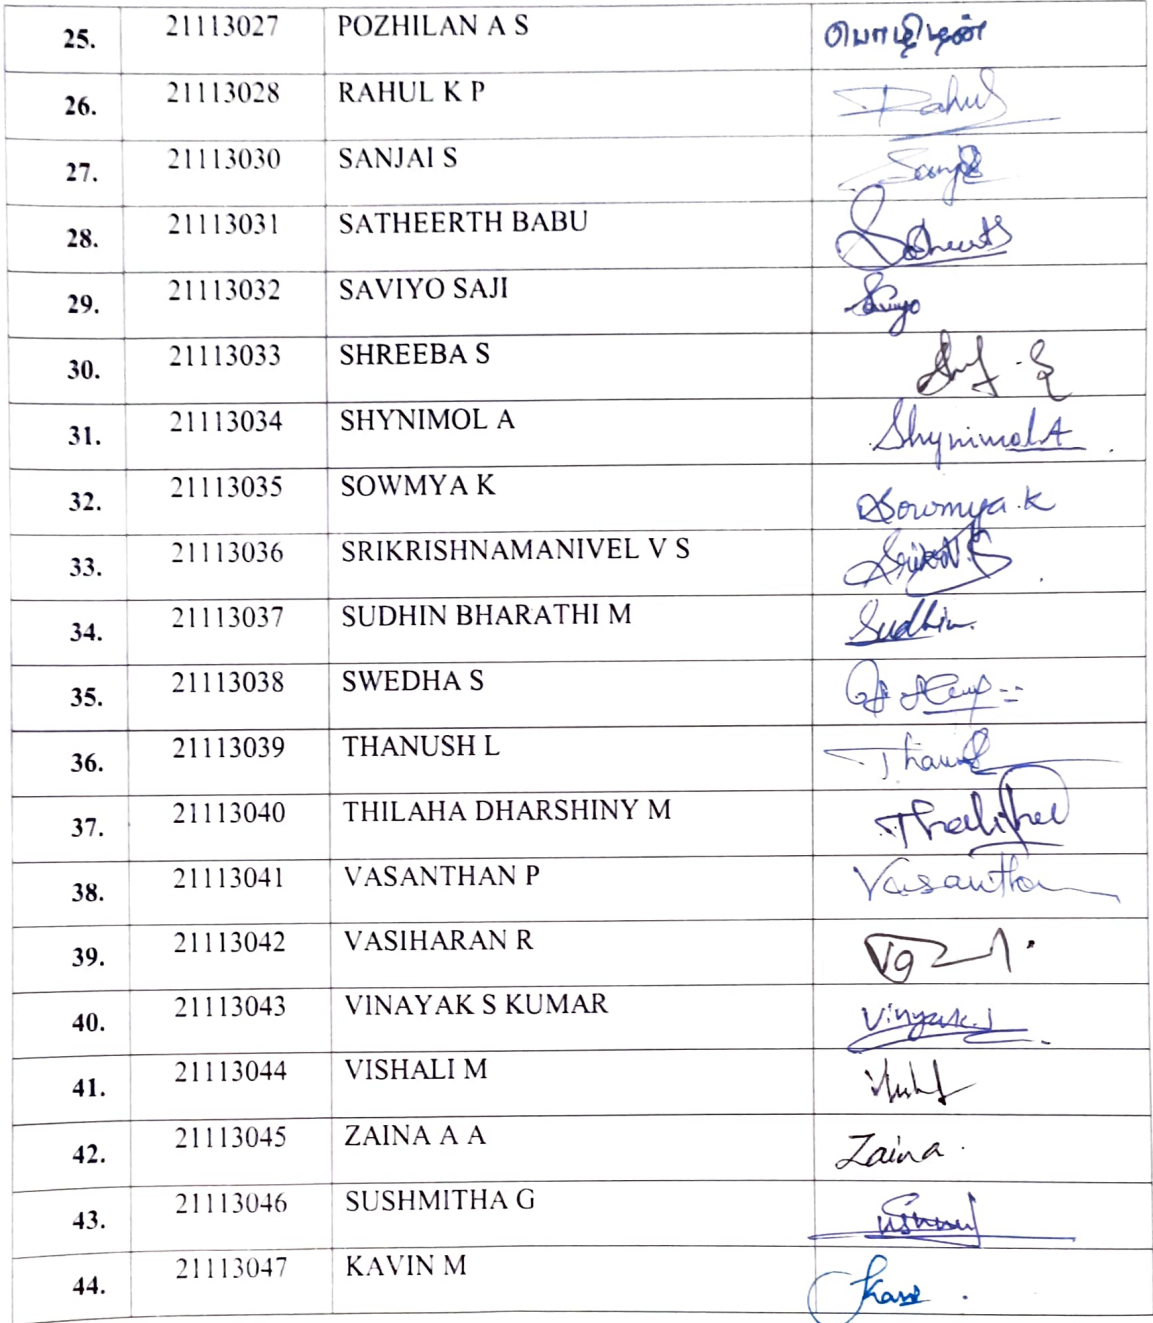 25. 21113027 POZHILAN A S பொழிலன்
26. 21113028 RAHUL K P Rahul
27. 21113030 SANJAI S
28. 21113031 SATHEERTH BABU
29. 21113032 SAVIYO SAJI Saviyo
30. 21113033 SHREEBA S
31. 21113034 SHYNIMOL A Shynimol A
32. 21113035 SOWMYA K Sowmya.K
33. 21113036 SRIKRISHNAMANIVEL V S
34. 21113037 SUDHIN BHARATHI M Sudhin.
35. 21113038 SWEDHA S
36. 21113039 THANUSH L
37. 21113040 THILAHA DHARSHINY M
38. 21113041 VASANTHAN P
39. 21113042 VASIHARAN R
40. 21113043 VINAYAK S KUMAR
41. 21113044 VISHALI M
42. 21113045 ZAINA A A Zaina.
43. 21113046 SUSHMITHA G
44. 21113047 KAVIN M